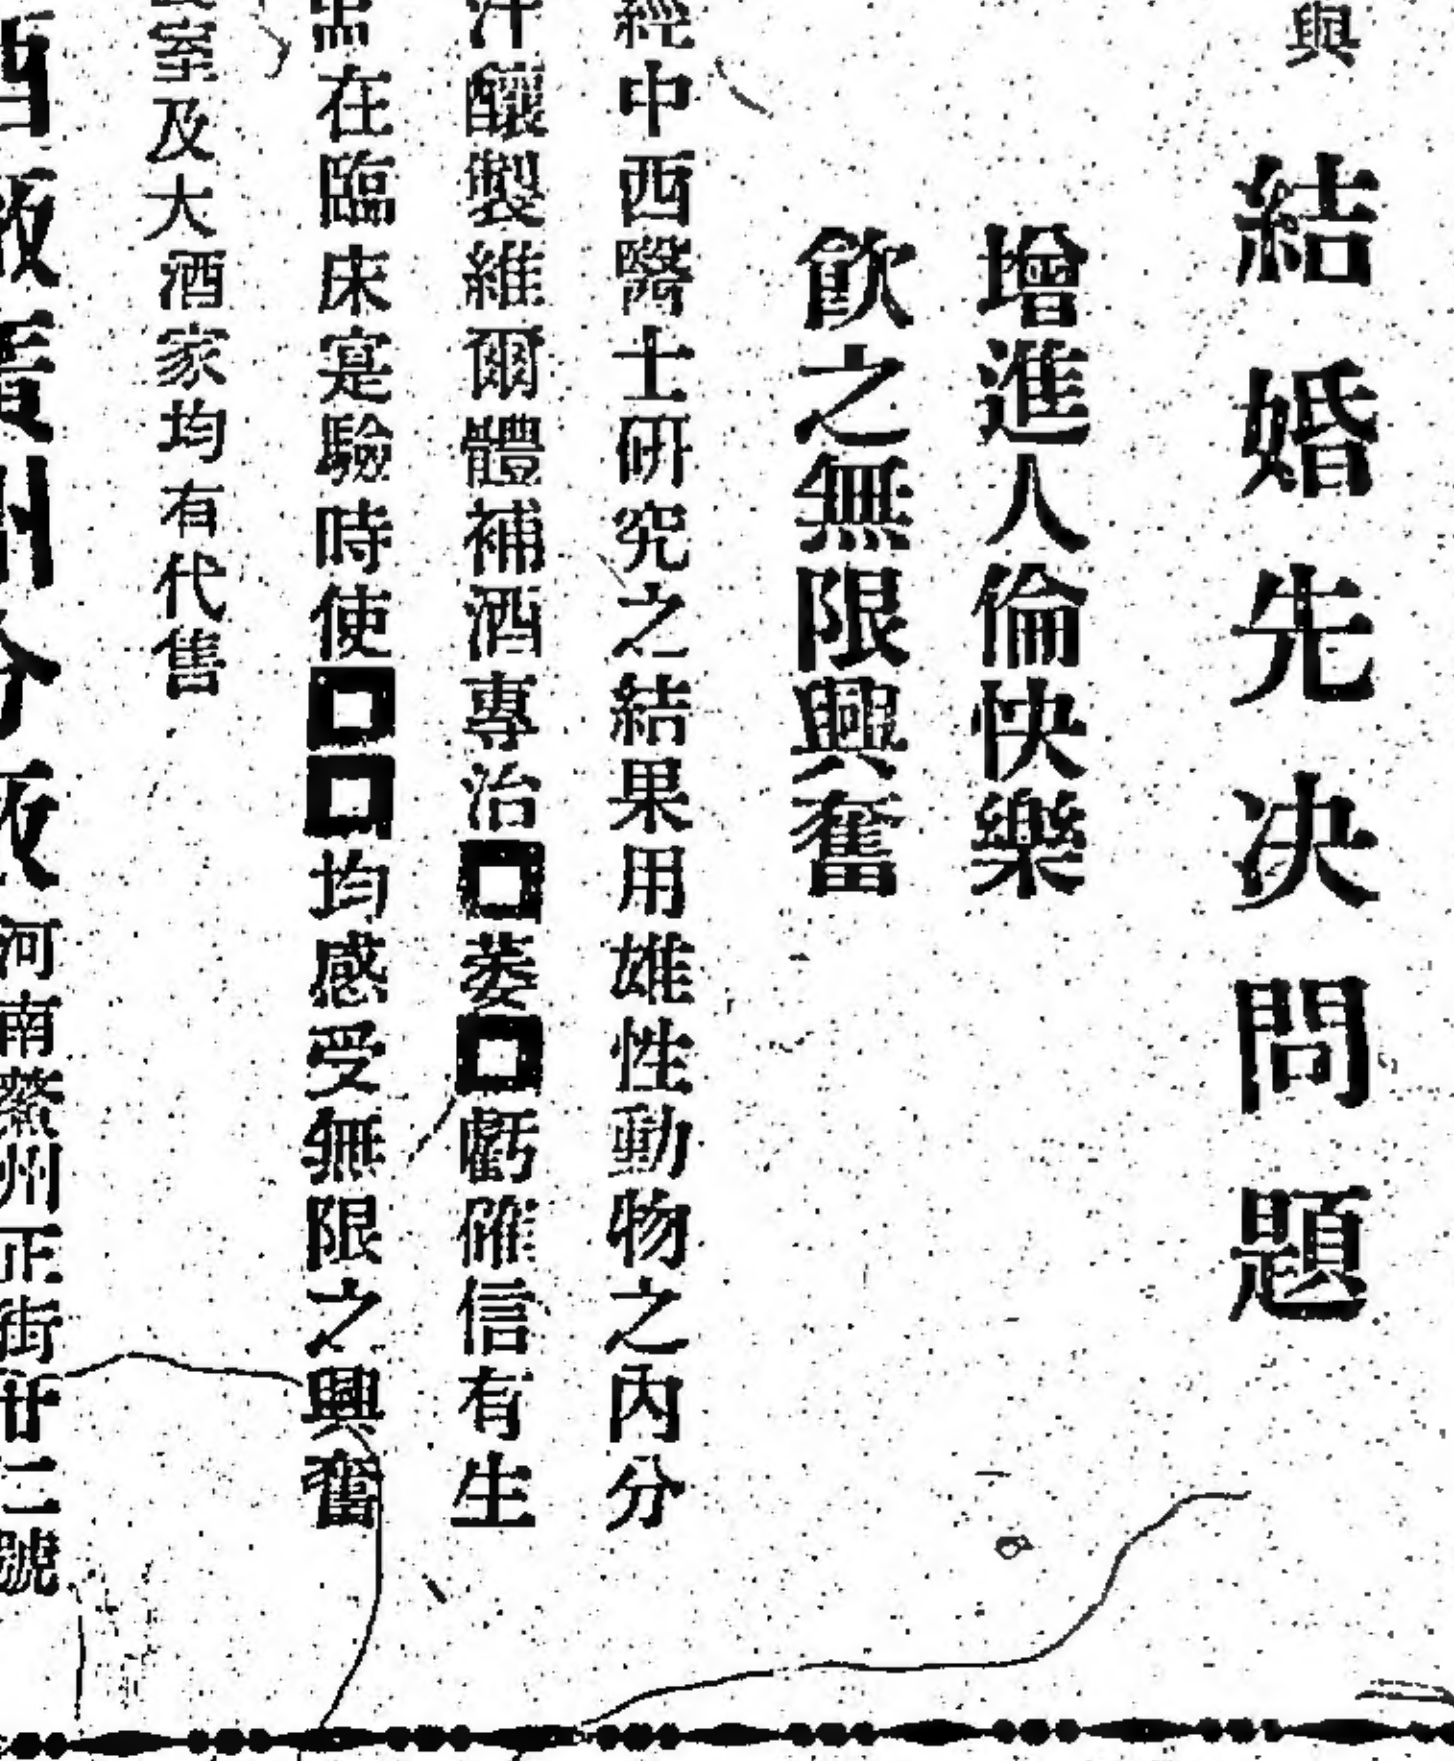 與
結婚先決問題
增進人倫快樂
飲之無限興奮
經中西醫士研究之結果用雄性動物之內分
汁釀製維爾體補酒專治□萎□虧確信有生
在臨床寔驗時使□□均感受無限之興奮
室及大酒家均有代售
酒廠廣州分廠河南鰲洲正街廿二號